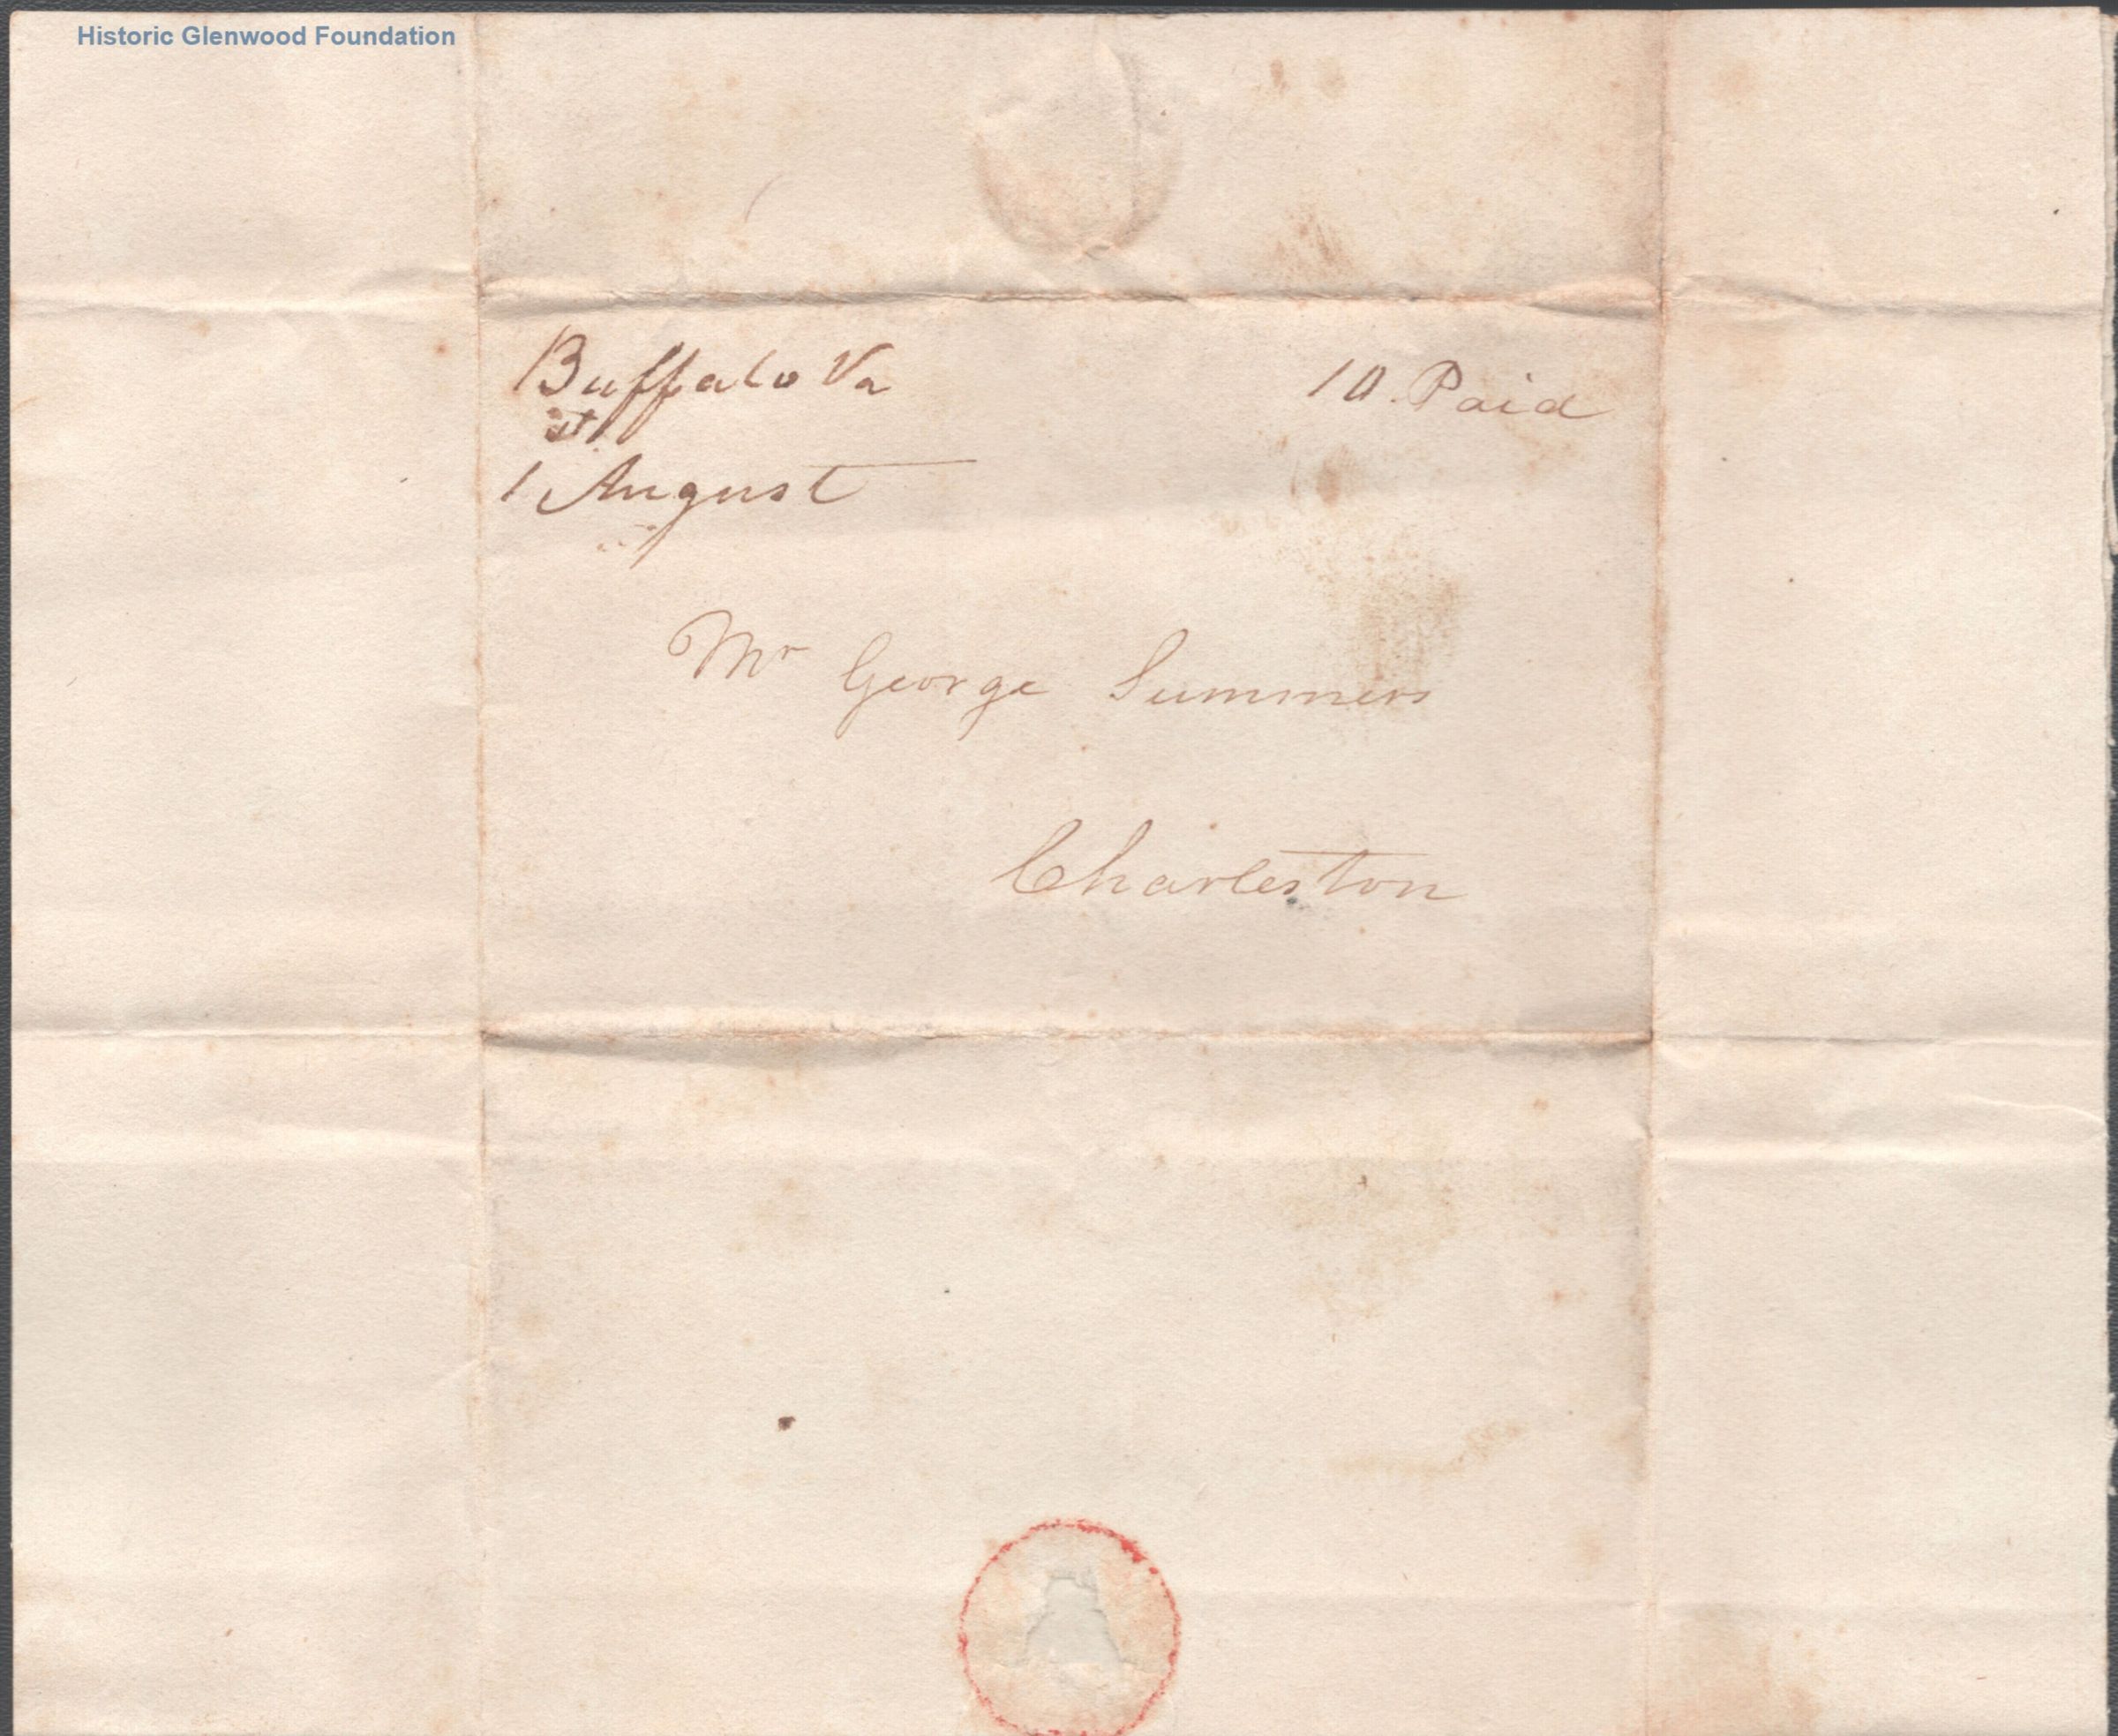 Historic Glenwood Foundation
Buffalo Va 10 Paid
1 August
Mr George Summers
Charleston